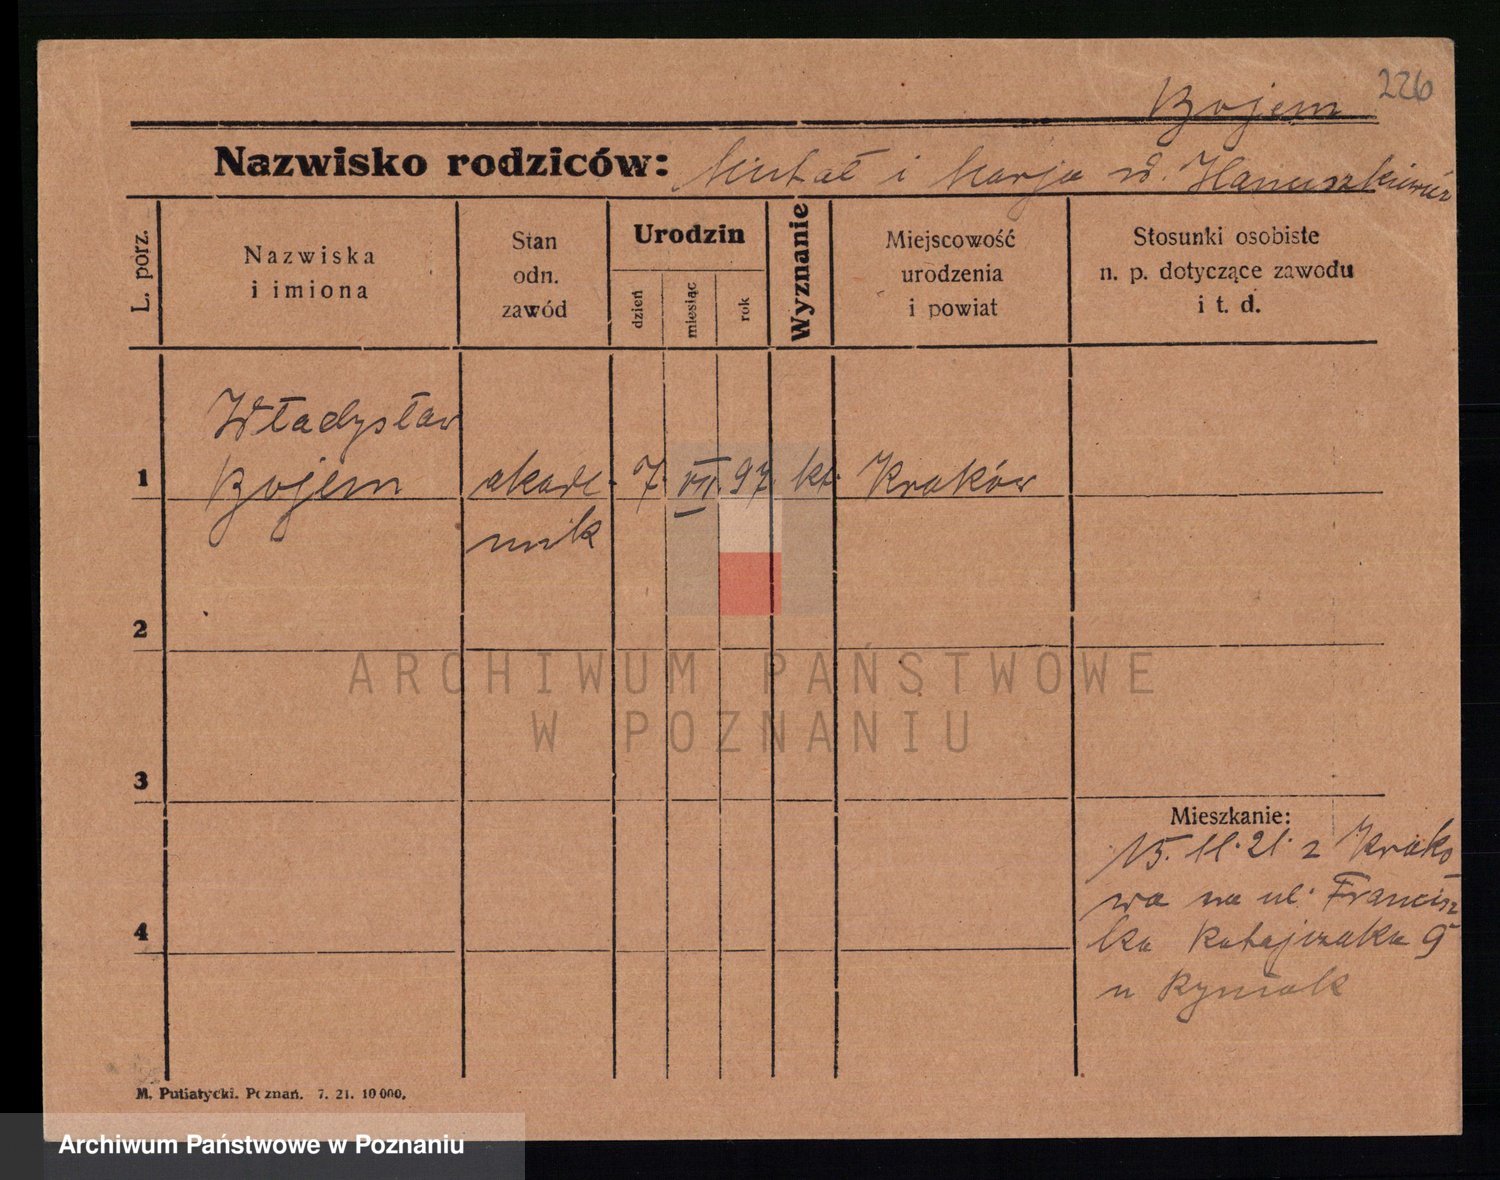 226
Bojem
Nazwisko rodziców: Michał i Marja d. Hanuszkiewicz
L. porz.
Nazwiska
i imiona
Stan
odn.
zawód
Urodzin
dzień
miesiąc
rok
Wyznanie
Miejscowość
urodzenia
i powiat
Stosunki osobiste
n. p. dotyczące zawodu
i t. d.
Władysław
1 Bojem akade- 7. VII. 97 kt. Kraków
mik
2
ARCHIWUM PAŃSTWOWE
W POZNANIU
3
Mieszkanie:
15. 11. 21. z Krako
wa na ul. Francisz
4 ka Ratajczaka 9
u Ryniak
M. Putiatycki. Poznań. 7. 21. 10 000.
Archiwum Państwowe w Poznaniu